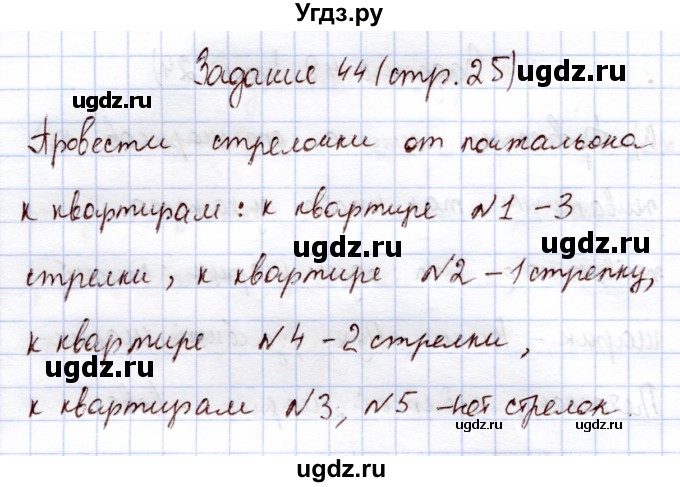 Угдз.ру
Задание 44 (стр. 25) ugdz.ru
ugdz.ru
Провести стрелочки от почтальона
к квартирам: к квартире №1 – 3
ugdz.ru
ugdz.ru
стрелки, к квартире №2 – 1 стрелку,
к квартире №4 – 2 стрелки,
ugdz.ru
ugdz.ru
к квартирам №3, №5 – нет стрелок.
ugdz.ru
ugdz.ru
ugdz.ru